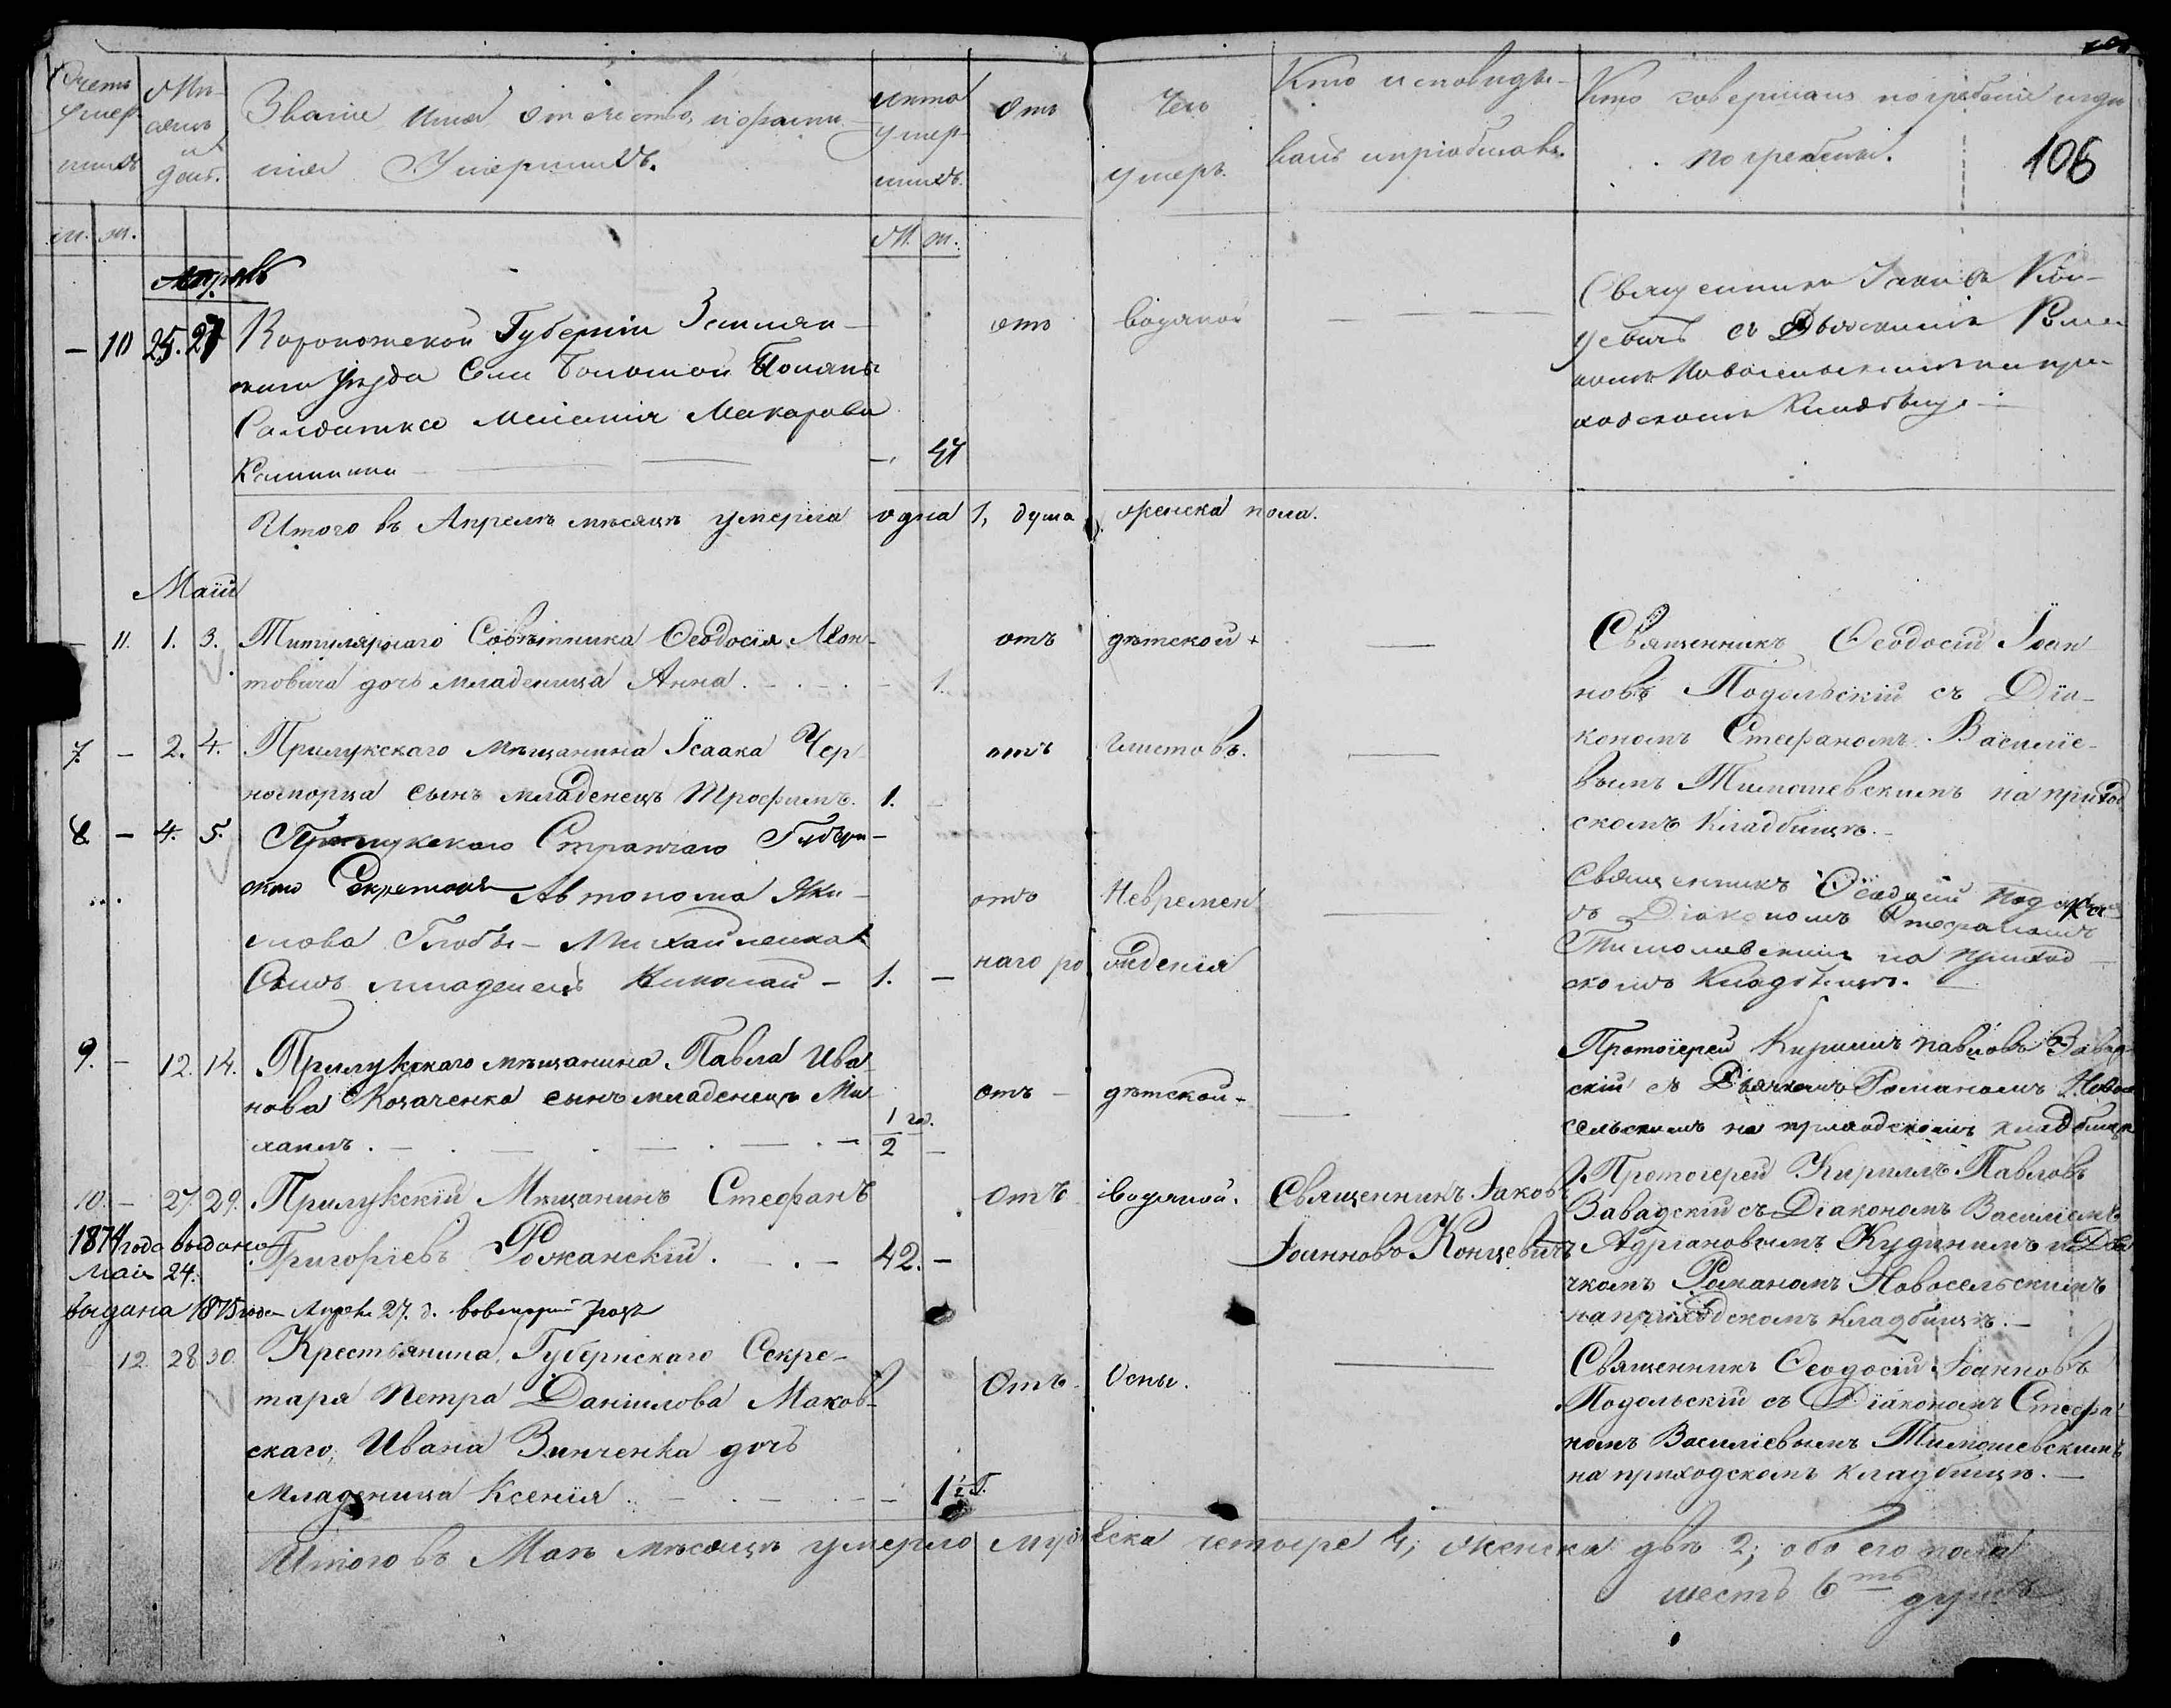 Счетъ умер шихъ
Мѣ сяцъ и день.
Званіе имя отчество, и фами
лія Умершихъ.
Лѣта умер шихъ.
Отъ
Чего
умеръ.
Кто исповѣды
валъ и пріобщалъ.
Кто совершалъ погребеніе и гдѣ
погребены.
106
м. ж.
М. ж.
Апрель
– 10 25. 27
Воронежской Губерніи Землян
скаго Уѣзда Села
Солдатка Макарова
– 47
отъ водяной
Священникъ
уевичъ съ
Новосельскимъ на при
ходскомъ Кладбищѣ
Итого въ Апрелѣ мѣсяцѣ умерла одна 1, душа женска пола.
Маій
– 11. 1. 3. Титулярнаго Совѣтника Ѳеодосія Леон
товича дочь младеница Анна. – 1.
отъ дѣтской
Священникъ Ѳеодосій Іоан
новъ Подольскій съ Діа
кономъ Стефаномъ Василіе
вымъ Тимошевскимъ на приход
скомъ Кладбищѣ.
7. – 2. 4. Прилукскаго мѣщанина Ісаака Чер
ногорца сынъ младенецъ Трофимъ. 1. –
отъ глистовъ.
8. – 4. 5. Прилукскаго Стряпчаго Губерн
скаго Секретаря Автонома Яки
мова Глобы – Михайленка
Сынъ младенецъ Николай – 1. –
отъ Невремен
наго рожденія
Священникъ Ѳеодосій Подольскій
съ Діакономъ Стефаномъ
Тимошевскимъ на приход
скомъ Кладбищѣ.
9. – 12. 14. Прилукскаго мѣщанина Павла Ива
нова Козаченка сынъ младенецъ Ми
хаилъ. – 1/2 год. –
отъ – дѣтской –
Протоіерей Кириллъ Павловъ Завад
скій съ Дьячкомъ Романомъ Ново
сельскимъ на приходскомъ кладбищѣ
10. – 27. 29. Прилукскій Мѣщанинъ Стефанъ
Григоріевъ Рожанскій. – 42. –
отъ водяной.
Священникъ Іаковъ
Іоанновъ Концевичъ
Протоіерей Кириллъ Павловъ
Завадскій съ Діакономъ Василіемъ
Адріановымъ Кудинимъ и Дья
чкомъ Романомъ Новосельскимъ
на приходскомъ кладбищѣ. –
1874 года выдано
Маія 24.
выдана 1875 года Апреля 27. д. во второй разъ
12. 28. 30. Крестьянина, Губернскаго Секре
таря Петра Даніилова Маков
скаго, Ивана Винченка дочь
Младеница Ксенія. – 1 1/2 г.
Отъ Оспы.
Священникъ Ѳеодосій Іоанновъ
Подольскій съ Діакономъ Стефа
номъ Василіевымъ Тимошевскимъ
на приходскомъ кладбищѣ. –
Итого въ Маѣ мѣсяцѣ умерло мужеска четыре 4, женска двѣ 2; обоего пола
шесть 6ть душъ